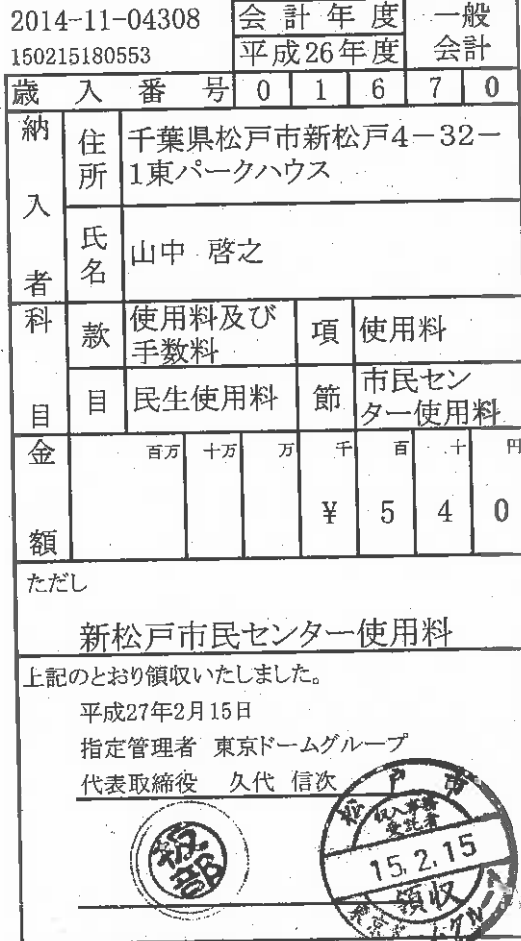 2014-11-04308 会計年度 一般
150215180553 平成26年度 会計
歳入番号 0 1 6 7 0
納入者 住所 千葉県松戸市新松戸4-32-
1東パークハウス
氏名 山中 啓之
科目 款 使用料及び
手数料 項 使用料
目 民生使用料 節 市民セン
ター使用料
金額 百万 十万 万 千 百 十 円
¥ 5 4 0
ただし
新松戸市民センター使用料
上記のとおり領収いたしました。
平成27年2月15日
指定管理者 東京ドームグループ
代表取締役 久代 信次
松戸市
収入事務
受託者
15.2.15
領収
服部